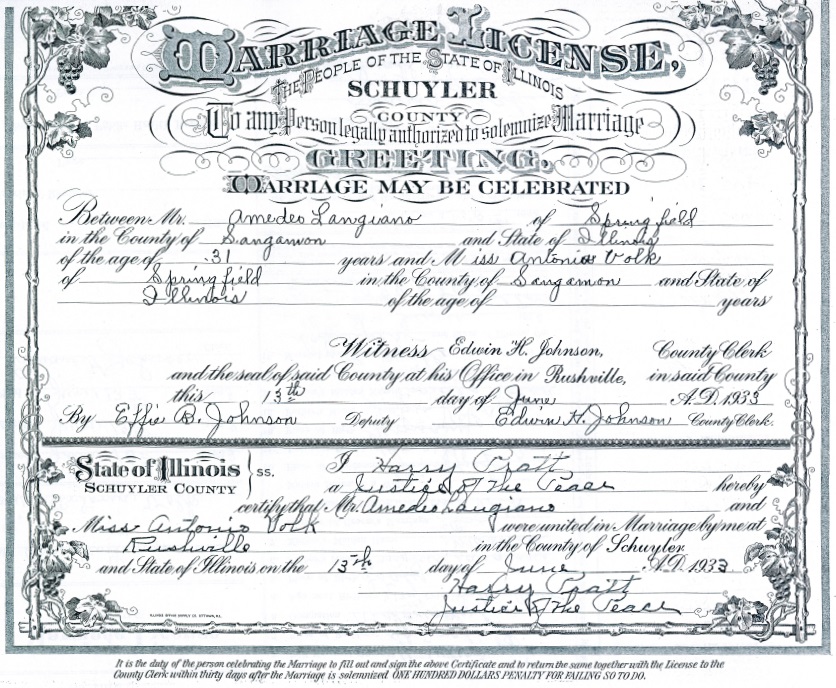 MARRIAGE LICENSE,
THE PEOPLE OF THE STATE OF ILLINOIS
SCHUYLER
COUNTY
To any Person legally authorized to solemnize Marriage
GREETING,
MARRIAGE MAY BE CELEBRATED
Between Mr. Amedeo Langiano of Springfield
in the County of Sangamon and State of Illinois
of the age of 31 years and Miss Antonia Volk
of Springfield in the County of Sangamon and State of
Illinois of the age of years
Witness Edwin H. Johnson, County Clerk
and the seal of said County at his Office in Rushville, in said County
this 13th day of June A.D. 1933
By Effie B. Johnson Deputy Edwin H. Johnson County Clerk.
State of Illinois } ss. I Harry Pratt
SCHUYLER COUNTY a Justice of The Peace hereby
certify that Mr. Amedeo Langiano and
Miss Antonio Volk were united in Marriage by me at
Rushville in the County of Schuyler
and State of Illinois on the 13th day of June A.D. 1933
Harry Pratt
Justice of The Peace
ILLINOIS OFFICE SUPPLY CO. OTTAWA, ILL.
It is the duty of the person celebrating the Marriage to fill out and sign the above Certificate and to return the same together with the License to the
County Clerk within thirty days after the Marriage is solemnized. ONE HUNDRED DOLLARS PENALTY FOR FAILING SO TO DO.